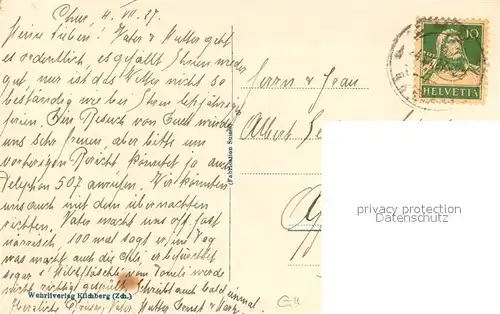 Chur, 4. VII. 27.
Meine Lieben! Vater & Mutter geht
es ordentlich, es gefällt Ihnen wieder
gut nur ist das Wetter nicht so
beständig wie bei Ihren letztjährigen
Ferien. Ein Besuch von Euch würde
uns sehr freuen, aber bitte um
vorherigen Bericht könntet ja auch
Telephon 507 anrufen. Wir könnten
uns auch mit dem übernachten
richten. Vater macht uns oft fast
närrisch, 100 mal sagt er im Tag
was macht auch die
sogar s' Milchfläschli vom werde
nicht richtig gespült. Schreibt auch bald einmal
Herzliche Grüsse, Vater, Mutter Ernst &
Wehrliverlag Kilchberg (Zch.)
(Fabrication Suisse)
Herrn & Frau
Albert
HELVETIA
10
privacy protection